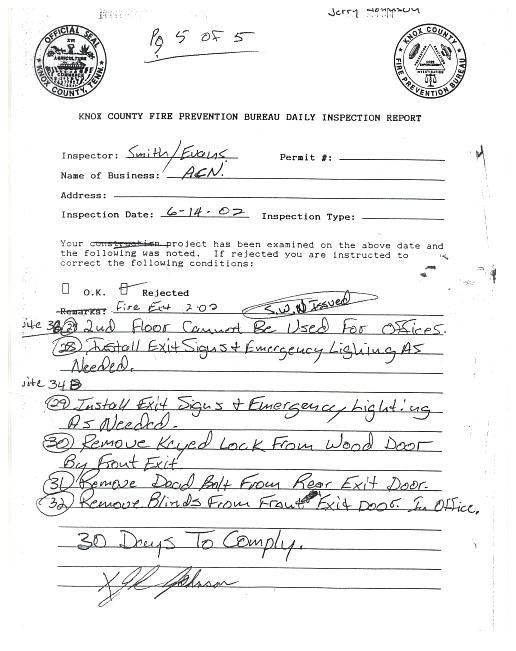 Jerry
Pg 5 of 5
OFFICIAL SEAL
AGRICULTURE
COMMERCE
KNOX COUNTY, TENN.
KNOX COUNTY
FIRE PREVENTION BUREAU
KNOX COUNTY FIRE PREVENTION BUREAU DAILY INSPECTION REPORT
Inspector: Smith/Evans Permit #:
Name of Business: AGN.
Address:
Inspection Date: 6-14-02 Inspection Type:
Your construction project has been examined on the above date and
the following was noted. If rejected you are instructed to
correct the following conditions:
O.K. Rejected
Remarks: Fire Ext 2-02 S.W.N Issued
2nd Floor Cannot Be Used For Offices.
28 Install Exit Signs & Emergency Lighing As
Needed.
34B
29 Install Exit Signs & Emergency Lighting
As Needed.
30 Remove Keyed Lock From Wood Door
By Front Exit
31 Remove Dead Bolt From Rear Exit Door.
32 Remove Blinds From Front Exit Door. In Office.
30 Days To Comply.
X Johnson